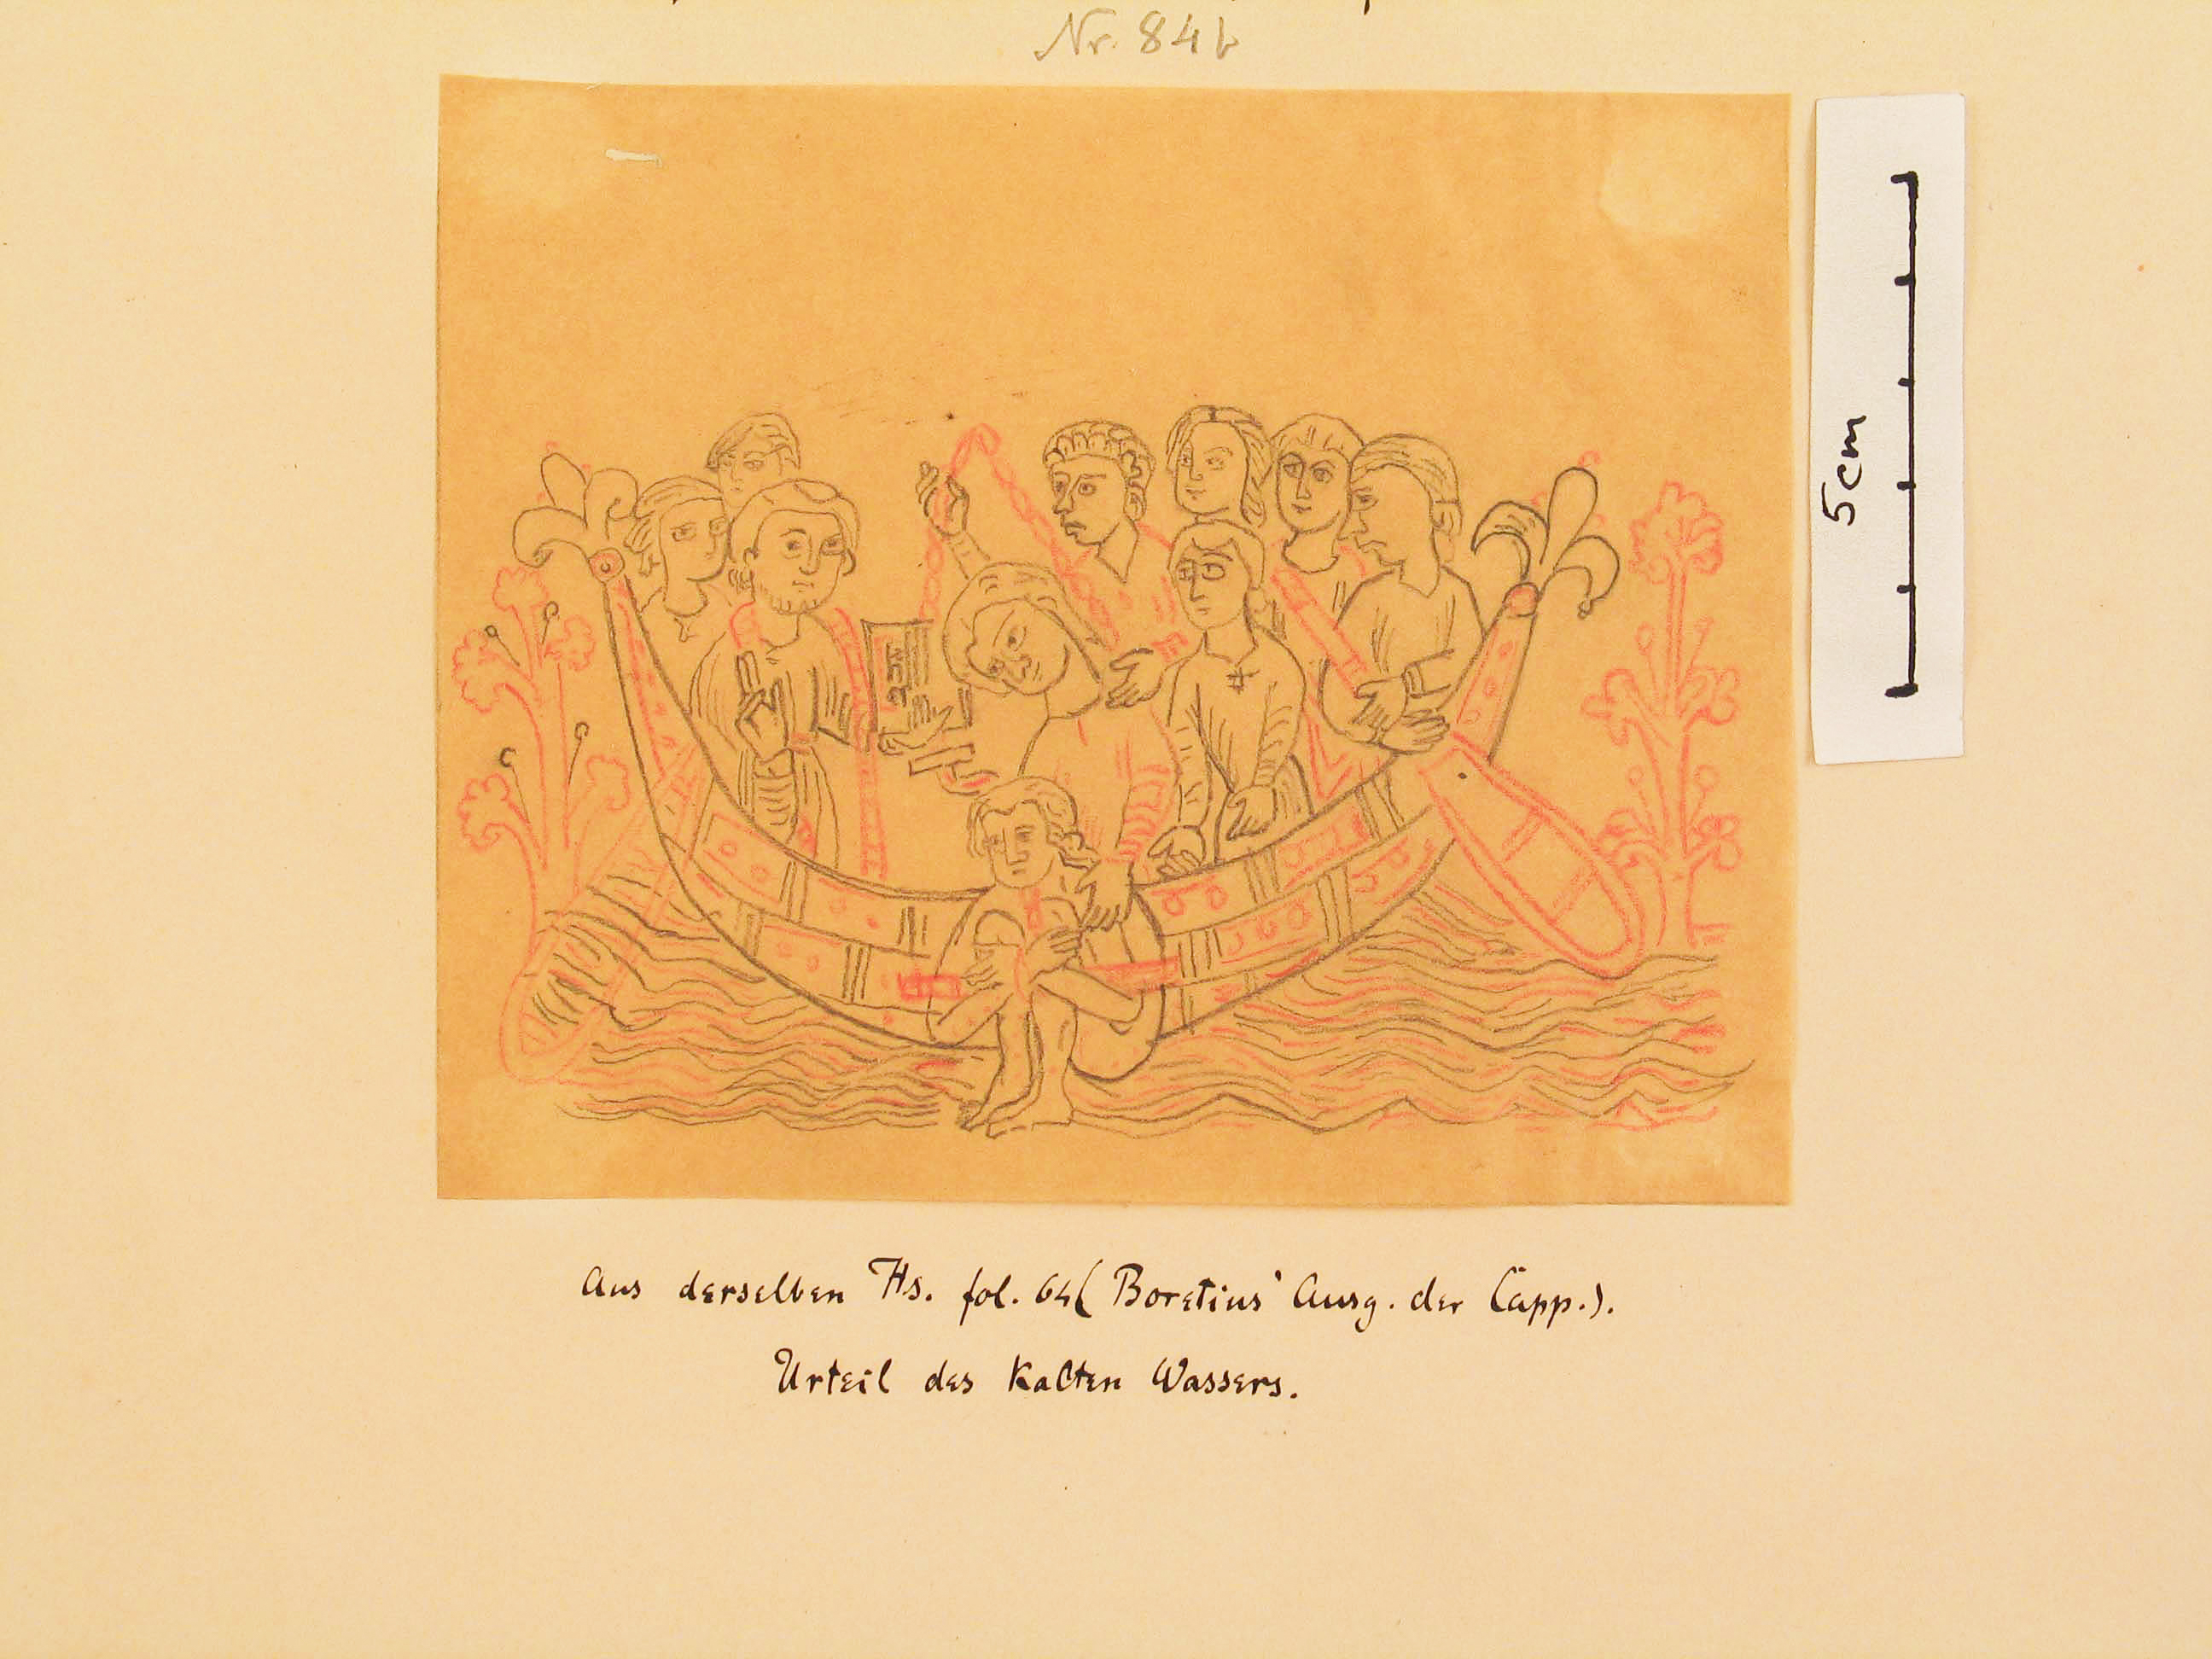 Nr. 84b
5cm
Aus derselben Hs. fol. 64 (Boretius' Ausg. der Capp.).
Urteil des kalten Wassers.